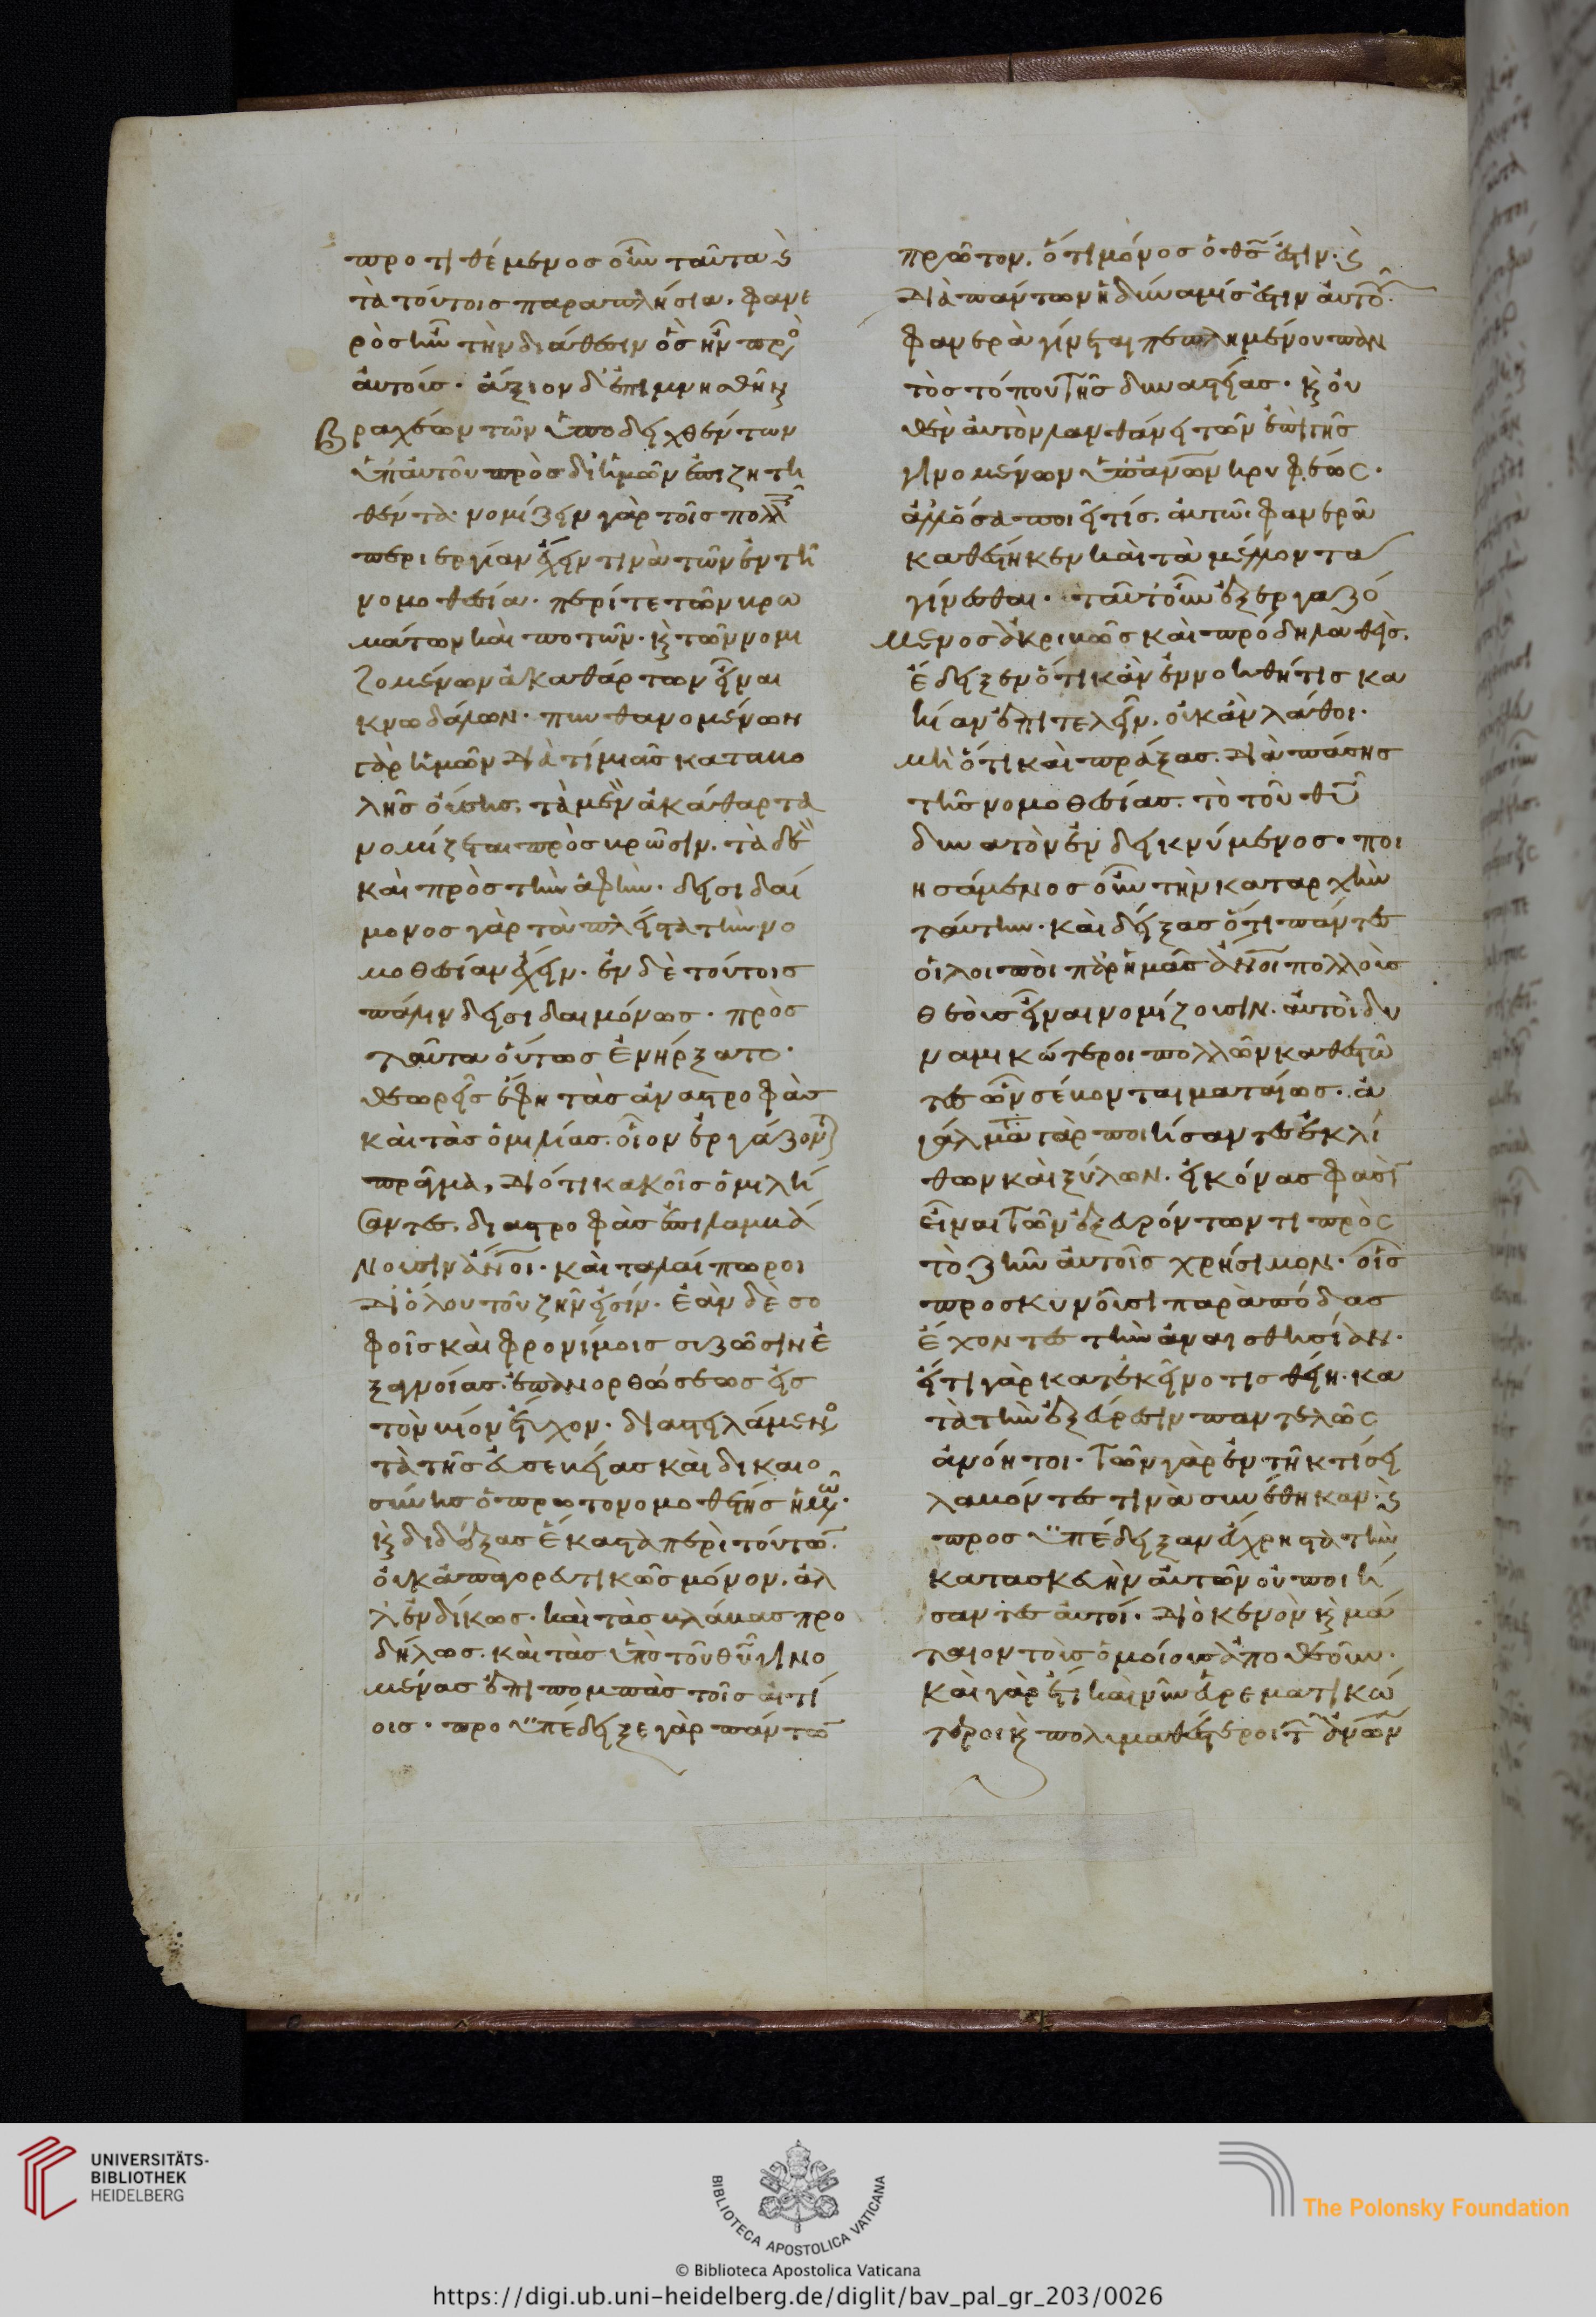 προτιθέμενος οὖν ταῦτα ϗ
τὰ τούτοις παραπλήσια. φανε
ρὸς ἦν τὴν διάθεσιν ὃς ἦν πρὸ
αὐτοίς. ἄξιον δ' ἐπιμνησθῆναι
βραχέων τῶν ὑποδειχθέντων
ὑπ' αὐτοῦ πρὸς δι' ἡμῶν ἐπιζητη
θέντα. νομίζειν γὰρ τοῖς πολλ
περιεργίαν ἔχειν τινὰ τῶν ἐν τῆ
νομοθεσία. περί τε τῶν βρω
μάτων καὶ ποτῶν. ϗ τῶν νομι
ζομένων ἀκαθάρτων εἶναι
κνωδάλων. πυνθανομένων
γὰρ ἡμῶν διὰ τί μιᾶς καταβο
λῆς οὔσης. τὰ μὲν ἀκάθαρτα
νομίζεται πρὸς βρῶσιν. τὰ δὲ
καὶ πρὸς τὴν ἁφήν. δεισιδαί
μονος γὰρ τὰ πλεῖστα τὴν νο
μοθεσίαν ἔχειν. ἐν δὲ τούτοις
πάλιν δεισιδαιμόνως. πρὸς
ταῦτα οὕτως ἐνήρξατο.
θεωρεῖς ἔφη τὰς ἀναστροφὰς
καὶ τὰς ὁμιλίας. οἷον ἐργάζον
πρᾶγμα, διότι κακοῖς ὁμιλή
σαντες. διαστροφὰς ἐπιλαμβά
νουσιν ἄνοι. καὶ ταλαίπωροι
δι' ὅλου τοῦ ζῆν εἰσίν. ἐὰν δὲ σο
φοῖς καὶ φρονίμοις συζῶσιν ἐ
ξ ἀγνοίας. ἐπανορθώσεως εἰς
τὸν βίον ἔτυχον. διαστειλάμενο
τὰ τῆς εὐσεβείας καὶ δικαιο
σύνης ὁ πρωτονομοθέτης ἡμῶ.
ϗ διδάξας ἕκαστα περὶ τούτω.
οὐκ ἀπαγορευτικῶς μόνον. ἀλ
λ' ἐνδίκως. καὶ τὰς βλάβας προ
δήλως. καὶ τὰς ὑπὸ τοῦ θυ γινο
μένας ἐπιπομπὰς τοῖς αἰτί
οις. προϋπέδειξε γὰρ πάντω
πρῶτον. ὅτι μόνος ὁ θς ἐστιν. ϗ
διὰ πάντων ἡ δύναμίς ἐστιν αὐτο.
φανερὰ γίνεται πεπλημένου παν
τὸς τόπου τῆς δυναστείας. ϗ οὐ
θὲν αὐτὸν λανθάνει τῶν ἐπὶ γῆς
γινομένων ὑπ' ανων κρυφέως.
ἀλλ' ὅσα ποιεῖ τίς. αὐτῶ φανερᾶ
καθέστηκεν καὶ τὰ μέλλοντα
γίνεσθαι. ταῦτ' οὖν ἐξεργαζό
μενος ἀκριβῶς καὶ πρόδηλα θεὶς.
ἔδειξεν ὅτι κἂν ἐννοηθῆ τις κα
κίαν ἐπιτελεῖν. οὐκ ἂν λάθοι.
μὴ ὅτι καὶ πράξας. διὰ πάσης
τῆς νομοθεσίας. τὸ τοῦ θυ
δυνατὸν ἐνδεικνύμενος. ποι
ησάμενος οὖν τὴν καταρχὴν
ταύτην. καὶ δείξας ὅτι πάντες
οἱ λοιποὶ παρ' ἡμᾶς ἄνοι πολλοὺς
θεοὺς εἶναι νομίζουσιν. αὐτοὶ δυ
ναμικώτεροι πολλῶν καθεστῶ
τες ὧν σέβονται ματαίως. ἀ
γάλματα γὰρ ποιήσαντες ἐκ λί
θων καὶ ξύλων. εἰκόνας φασὶ
εἶναι τῶν ἐξευρόντων τι πρὸς
τὸ ζῆν αὐτοῖς χρήσιμον. οἷς
προσκυνοῦσι παρὰ πόδας
ἔχοντες τὴν ἀναισθησίαν.
εἴ τι γὰρ κατ' ἐκεῖνό τις θείη. κα
τὰ τὴν ἐξεύρεσιν παντελῶς
ἀνόητοι. τῶν γὰρ ἐν τῆ κτίσει
λαβόντες τινὰ συνέθηκαν. ϗ
προσϋπέδειξαν εὔχρηστα τὴν
κατασκευὴν αὐτῶν οὐ ποιή
σαντες αὐτοί. διὸ κενὸν ϗ μά
ταιον τοὺς ὁμοίους ἀποθεοῦν.
καὶ γὰρ ἔτι καὶ νῦν εὑρεματικώ
τεροι ϗ πολυμαθέστεροι τ ανων
UNIVERSITÄTS-
BIBLIOTHEK
HEIDELBERG
BIBLIOTECA APOSTOLICA VATICANA
The Polonsky Foundation
© Biblioteca Apostolica Vaticana
https://digi.ub.uni-heidelberg.de/diglit/bav_pal_gr_203/0026